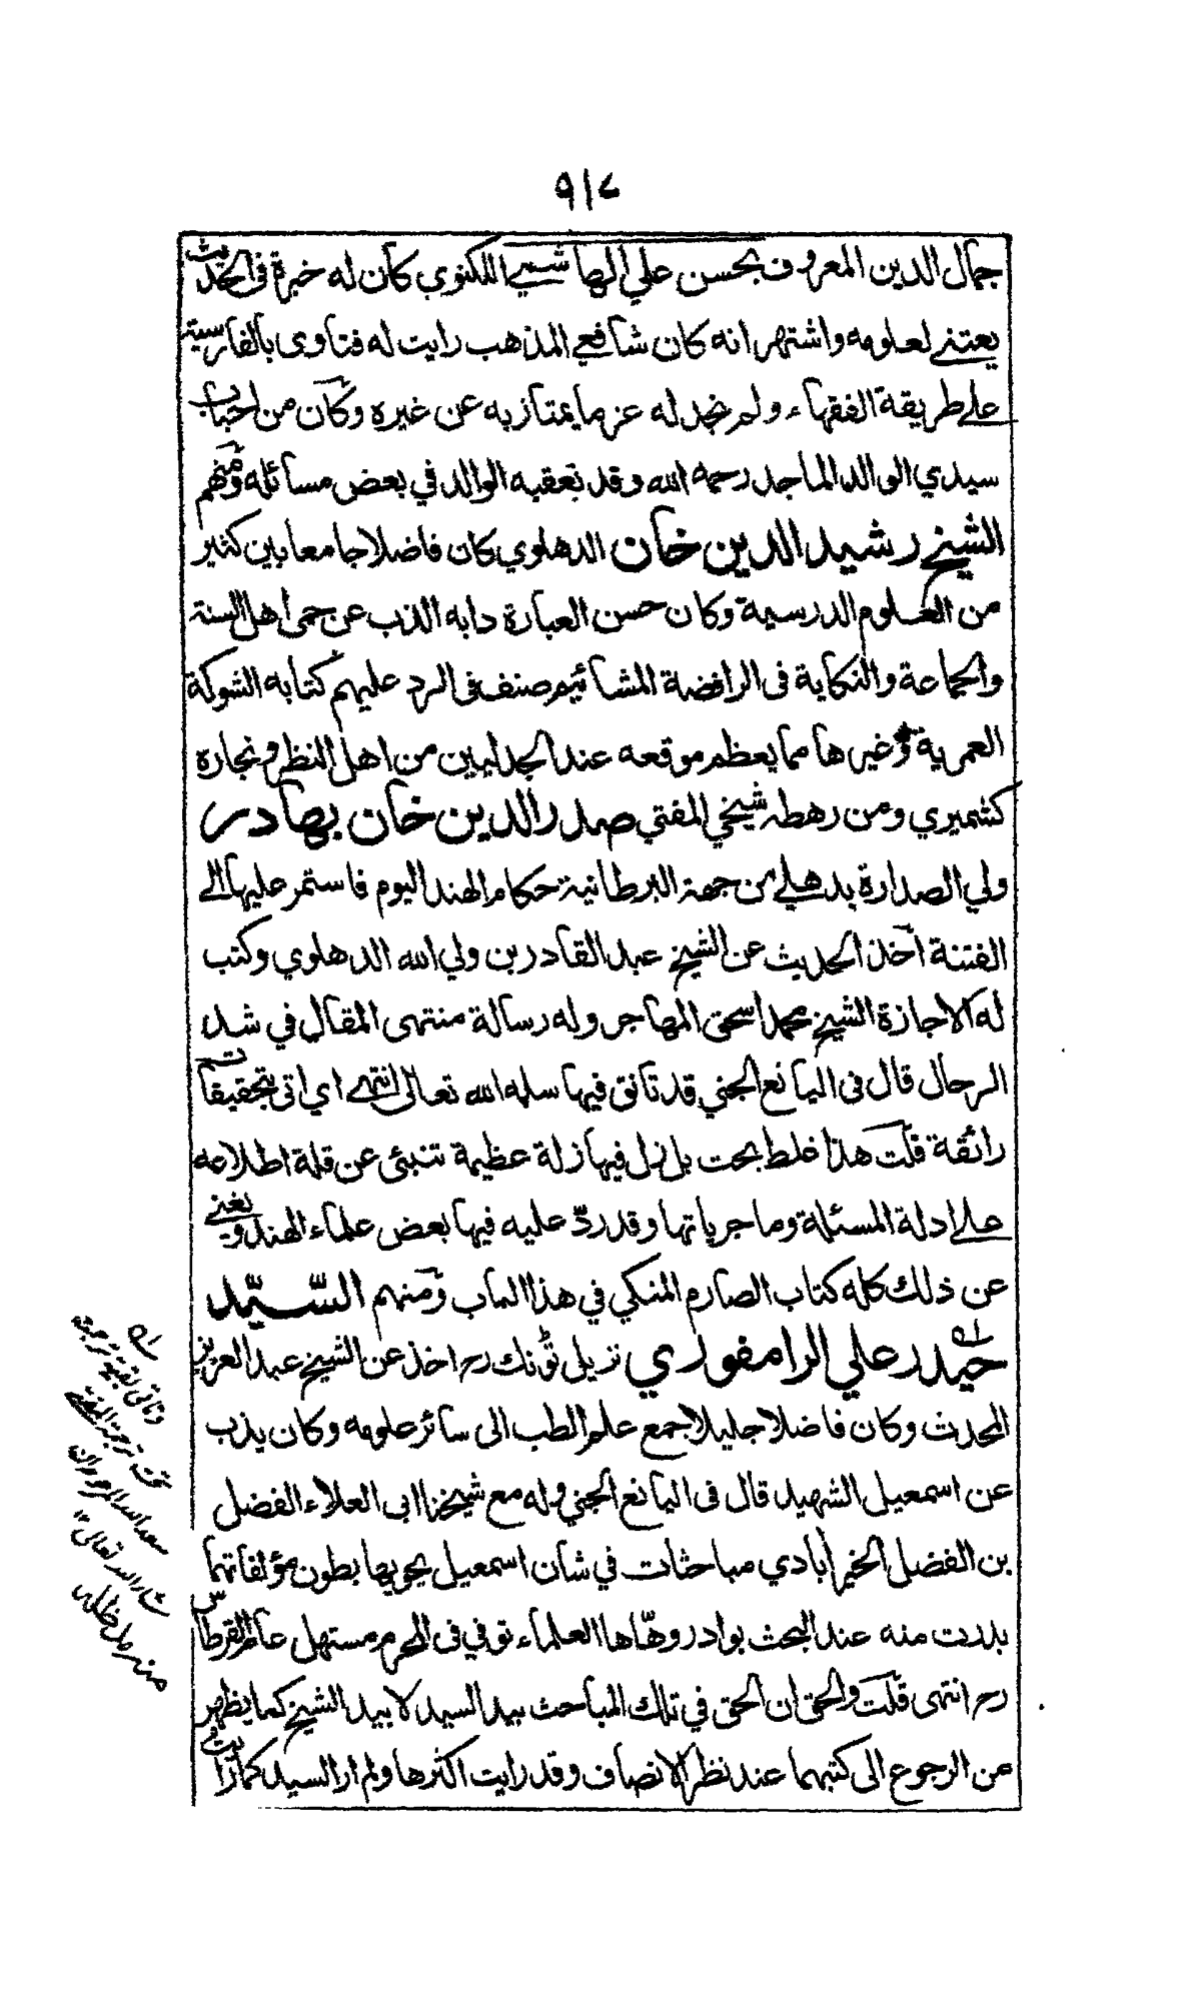 ٩١٧
جمال الدين المعروف بحسن علي الهاشمي اللكنوي كان له خبرة في الحديث
يعتني لعلومه واشتهر انه كان شافعي المذهب رايت له فتاوى بالفارسية
على طريقة الفقهاء ولم نجد له عزما يمتاز به عن غيره وكان من احباب
سيدي الوالد الماجد رحمه الله وقد تعقبه الوالد في بعض مسائله ومنهم
الشيخ رشيد الدين خان الدهلوي كان فاضلا جامعا بين كثير
من العلوم الدرسية وكان حسن العبارة دابه الذب عن حمى اهل السنة
والجماعة والنكاية في الرافضة المشائيم صنف في الرد عليهم كتابه الشوكة
العمرية وغيرها مما يعظم موقعه عند الجدليين من اهل النظر ونجاره
كشميري ومن رهطه شيخي المفتي صدر الدين خان بهادر
ولي الصدارة بدهلي من جهة البرطانية حكام الهند اليوم فاستمر عليها الى
الفتنة اخذ الحديث عن الشيخ عبد القادر بن ولي الله الدهلوي وكتب
له الاجازة الشيخ محمد اسحق المهاجر وله رسالة منتهى المقال في شد
الرحال قال في اليانع الجني قد تانق فيها سلمه الله تعالى انتهى اي اتى بتحقيقات
رائقة قلت هذا غلط بحت بل زل فيها زلة عظيمة تنبئ عن قلة اطلاعه
على ادلة المسئلة وما جرياتها وقد ردّ عليه فيها بعض علماء الهند ويغني
عن ذلك كله كتاب الصارم المنكي في هذا الباب ومنهم السّيّد
حيدر علي الرامفوري نزيل ٹونك رح اخذ عن الشيخ عبد العزيز
المحدث وكان فاضلا جليلا جمع علم الطب الى سائر علومه وكان يذب
عن اسمعيل الشهيد قال في اليانع الجني وله مع شيخنا ابي العلاء الفضل
بن الفضل الخيرأبادي مباحثات في شان اسمعيل يحويها بطون مؤلفاتهما
بدرت منه عند البحث بوادر وهّاها العلماء توفي في المحرم مستهل عام القرطاس
رح انتهى قلت والحق ان الحق في تلك المباحث بيد السيد لا بيد الشيخ كما يظهر
من الرجوع الى كتبهما عند نظر الانصاف وقد رايت اكثرها ولم ار السيد كما رايت
وتاتي بقية ترجمته
تحت ترجمة المفتي
سعد الله المرحوم ان
شاء الله تعالى ١٢
منه مد ظله